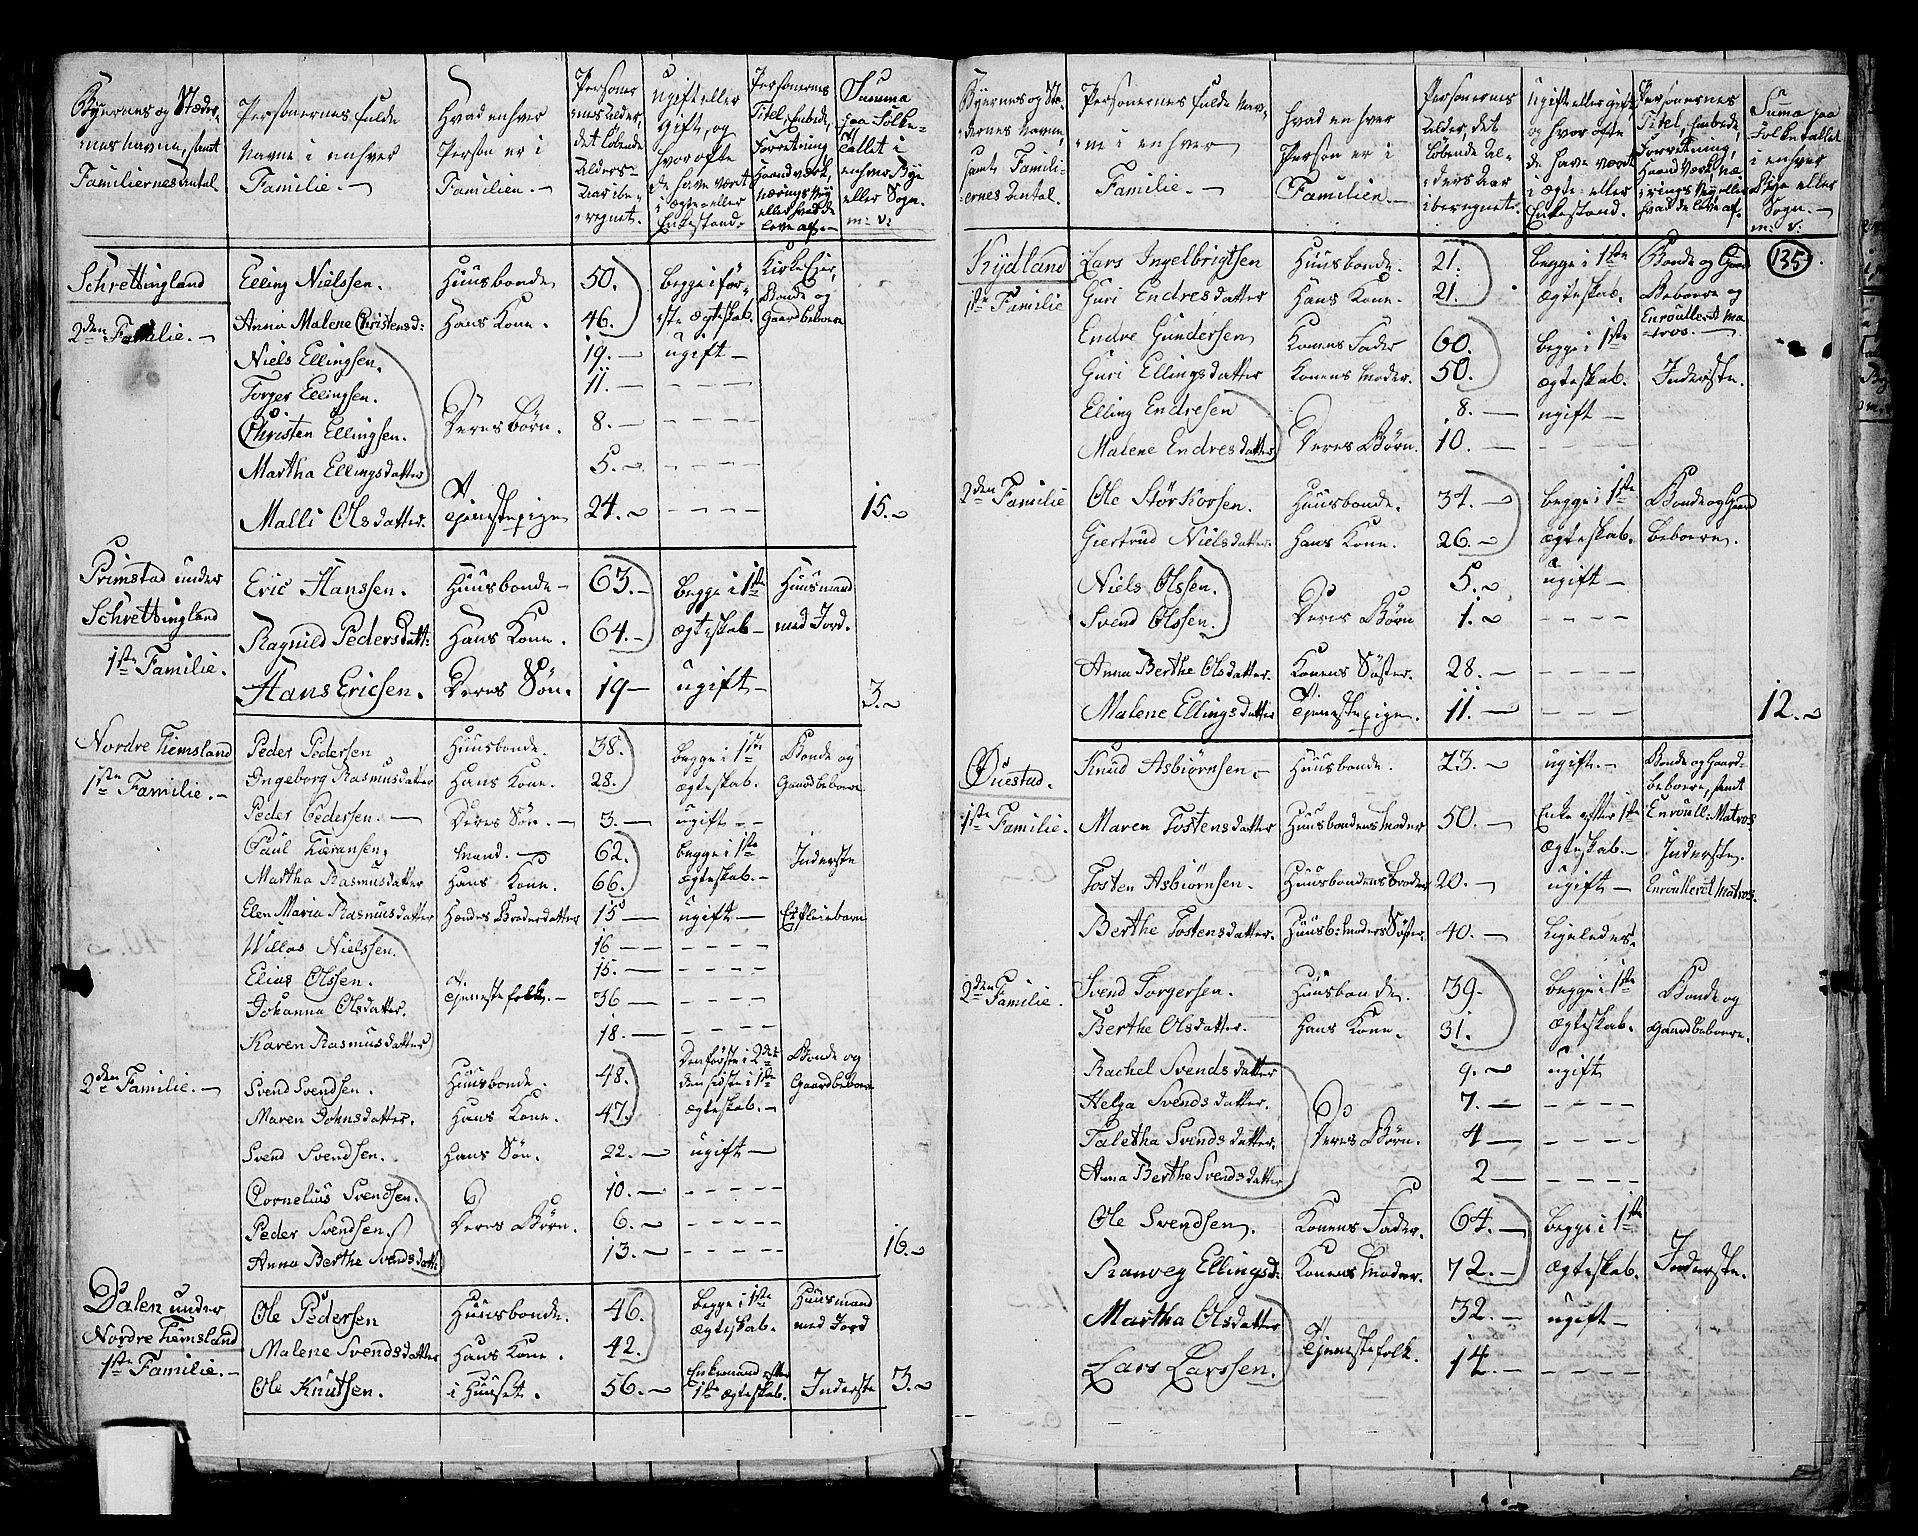 Byernes og Stæder-
nes Navne, samt
Familiernes Antal.
Personernes fulde
Navne i enhver
Familie.
Hvad enhver
Person er i
Familien.
Personer-
nes Alder,
det løbende
Alders-
Aar ibe-
regnet.
Ugift eller
Gift, og
hvor ofte
de have været
i Ægte- eller
Enkestand.
Personernes
Titel, Embede,
Forretning
Haandværk,
Nærings Vej
eller hvad de
leve af.
Summa
paa Folke-
tallet i
enhver Bye
eller Sogn.
m: v:
Schrettingland
2den Familie.
Elling Nielssen. Huusbonde 50. Begge i før- Kirke Eier,
Anna Malene Christensd: Hans Kone. 46. ste Ægteskab. Bonde og Gaardbeboere
Niels Ellingsen. 19. ugift
Torger Ellingsen. 11. - - - -
Christen Ellingsen. Deres Børn. 8. - - - -
Martha Ellingsdatter 5. - - - -
Malli Olsdatter. Tjenestepige 24. - - - - 15.
Primstad under
Schrettingland
1ste Familie.
Eric Hanssen. Huusbonde 63. Begge i 1ste Huusmand
Ragnild Pedersdatt: Hans Kone. 64. Ægteskab med Jord.
Hans Ericsen. Deres Søn. 19 ugift 3.
Nordre Tiemsland
1ste Familie.
Peder Pedersen Huusbonde. 38. Begge i 1ste Bonde og
Ingeborg Rasmusdatter Hans Kone. 28. Ægteskab. Gaardbeboere
Peder Pedersen. Deres Søn. 3. ugift
Paul Tøransen. Mand. 62. Begge i 1ste Inderste
Martha Rasmusdatter Hans Kone. 66. Ægteskab.
Elen Maria Rasmusdatter Hendes Broderdatter 15 ugift Et Pleiebarn
Willas Nielssen. 16 - - - -
Elias Olssen. 15. - - - -
Johanna Olsdatter. Tjenestefolk. 36 - - - -
Karen Rasmusdatter 18. - - - -
2den Familie.
Svend Svendsen. Huusbonde. 48. Den første i 2det Bonde og
Maren Johnsdatter. Hans Kone. 47. den sidste i 1ste Ægteskab. Gaardbeboere
Svend Svendsen. Hans Søn. 22. ugift
Cornelius Svendsen. 10. - - - -
Peder Svendsen. Deres Børn. 6. - - - -
Anna Berthe Svendsdatt: 13. - - - - 16.
Dalen under
Nordre Tiemsland
1ste Familie.
Ole Pedersen Huusbonde. 46. Begge i 1ste Huusmand
Malene Svendsdatter Hans Kone. 42. Ægteskab. med Jord
Ole Knutsen. i Huuset. 56. Enkemand efter 1ste Ægteskab. Inderste 3.
Byernes og Stæ-
dernes Navne,
samt Famili-
ernes Antal.
Personernes fulde Nav-
ne i enhver
Familie.
Hvad enhver
Person er i
Familien.
Personernes
Alder, det
løbende Al-
ders Aar
iberegnet.
Ugift eller gift,
og hvor ofte
de have været
i Ægte- eller
Enkestand.
Personernes
Titel, Embede,
Forretning,
Haandværk, Næ-
rings Vej eller
hvad de leve af.
Suma paa
Folketallet
i enhver
Bye eller
Sogn.
m: v:
135.
Rydland
1ste Familie
Lars Ingelbrigtsen Huusbonde. 21. Begge i 1ste Bonde og Gaard
Guri Endresdatter Hans Kone. 21. Ægteskab. Beboere og Enroulleret Matros.
Endre Gundersen Konens Fader 60. Begge i 1ste
Guri Ellingsdatter Konens Moder. 50. Ægteskab. Inderste.
Elling Endresen 8. ugift
Malene Endresdatter Deres Børn. 10. - - - -
2den Familie
Ole Størkorsen. Huusbonde. 34. Begge i 1ste Bonde og Gaard
Giertrud Nielsdatter. Hans Kone. 26. Ægteskab. beboere.
Niels Olssen. 5. ugift
Svend Olssen. Deres Børn 1. - - - -
Anna Berthe Olsdatter. Konens Søster. 28. - - - -
Malene Ellingsdatter Tjenestepige. 11. - - - - 12.
Øuestad.
1ste Familie.
Knud Asbiørnsen. Huusbonde. 23. ugift. Bonde og Gaard-
beboere, samt Enroull: Matros
Maren Tostensdatter Huusbondens Moder 50. Enke efter 1ste Ægteskab. Inderste.
Tosten Asbiørnsen. Huusbondens Broder 20. ugift Enroulleret Matros.
Berthe Tostensdatter. Huusb: Moders Søster. 40. Ligeledes
2den Familie.
Svend Torgersen. Huusbonde. 39. Begge i 1ste Bonde og
Berthe Olsdatter. Hans Kone. 31. Ægteskab. Gaardbeboere.
Rachel Svendsdatter 9. ugift
Helga Svendsdatter. 7. - - - -
Taletha Svendsdatter. Deres Børn. 4 - - - -
Anna Berthe Svendsdatter 2 - - - -
Ole Svendsen. Konens Fader. 64. Begge i 1ste
Ranveg Ellingsd: Konens Moder. 72. Ægteskab. Inderste.
Martha Olsdatter 32. ugift
Lars Larssen. Tjenestefolk. 14. - - - -